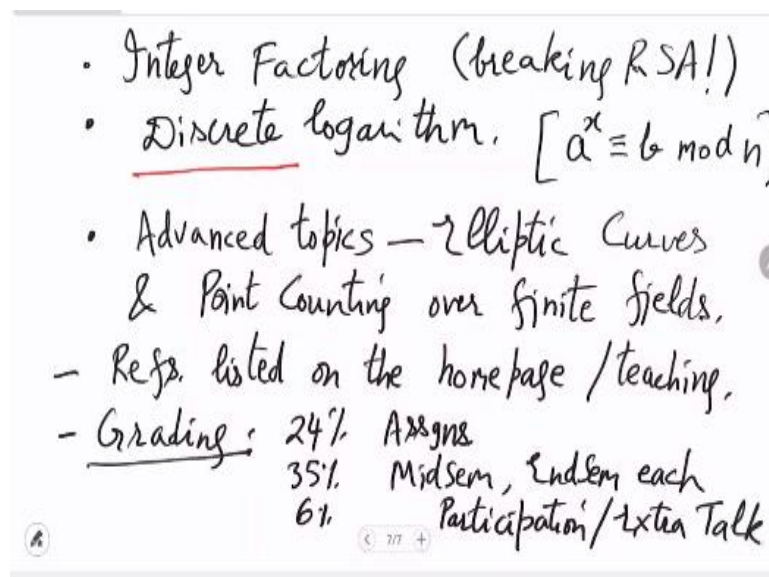 · Integer Factoring (breaking RSA!)
· Discrete logarithm. [a^x ≡ b mod n]
· Advanced topics — Elliptic Curves
& Point Counting over finite fields.
- Refs. listed on the homepage/teaching.
- Grading: 24% Assgns
35% Midsem, Endsem each
6% Participation/Extra Talk
7/7